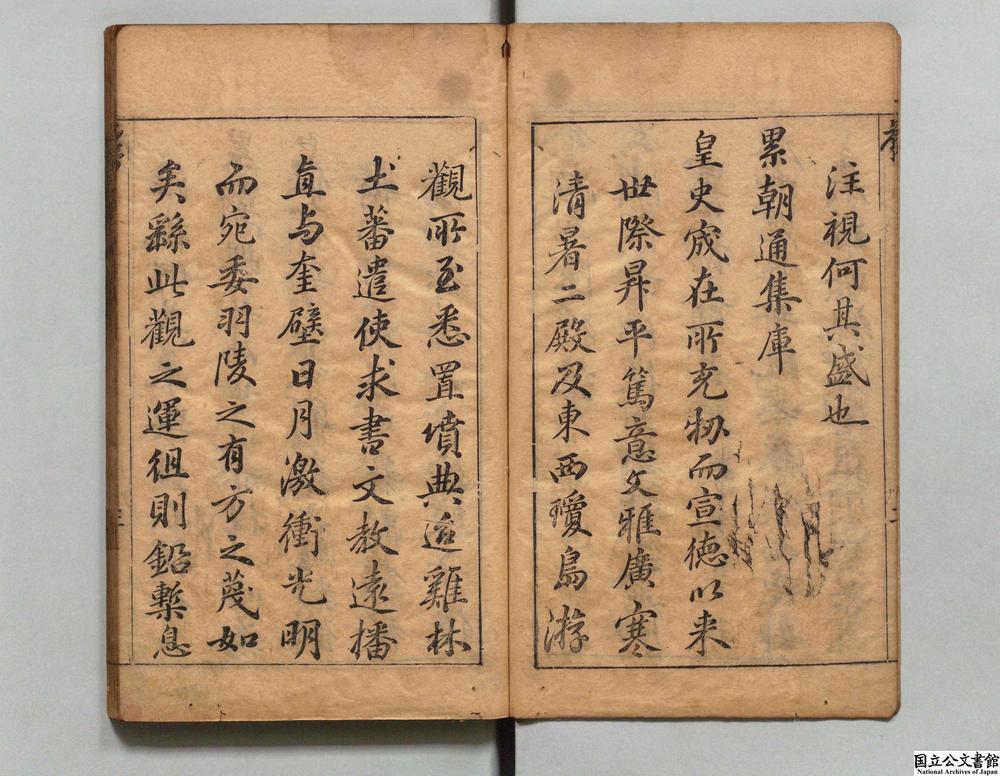 注視何其盛也
累朝通集庫
皇史宬在所充牣而宣德以来
世際昇平篤意文雅廣寒
清暑二殿及東西瓊島游
觀所至悉置墳典迨雞林
土蕃遣使求書文教遠播
直与奎壁日月激衝光明
而宛委羽陵之有方之蔑如
矣繇此觀之運徂則鉛槧息
国立公文書館
National Archives of Japan